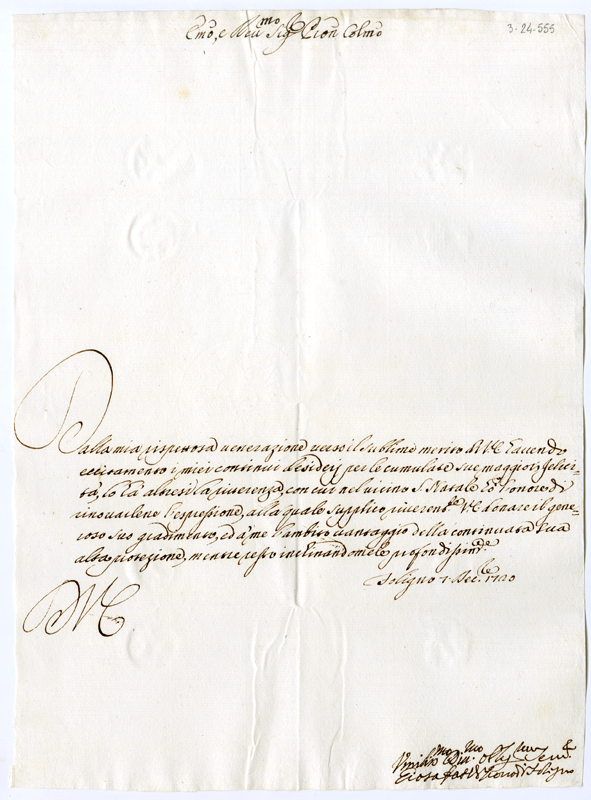 Emo, e Reu.mo Sig.re Pron Colmo
3-24-555
Dalla mia rispettosa uenerazione uerso il sublime merito di V.E. hauendo
eccitamento i miei continui desiderj per le cumulate sue maggiori felici=
tà, lo hà altresì la riuerenza, con cui nel uicino S. Natale hò l'onore di
rinouarlene l'espressione, alla quale supplico riuerente V.E. donare il gene=
roso suo gradimento, ed à me l'ambito uantaggio della continuata sua
alta protezione, mentre resto inchinandomele profondissim.te
Foligno Dec.bre 1720
D. V. E.
Vmiliss.mo Diu.mo
di Foligno